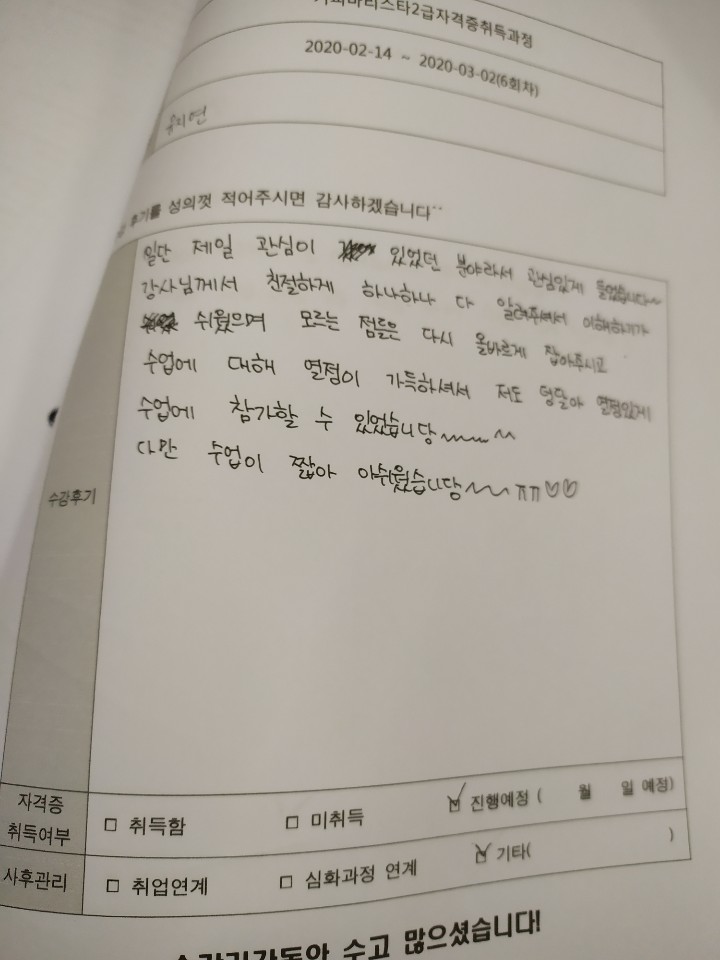 커피바리스타2급자격증취득과정
2020-02-14 ~ 2020-03-02(6회차)
후기를 성의껏 적어주시면 감사하겠습니다^^
일단 제일 관심이 있었던 분야라서 관심있게 들었습니다~
강사님께서 친절하게 하나하나 다 알려주셔서 이해하기가
쉬웠으며 모르는 점들은 다시 올바르게 잡아주시고
수업에 대해 열정이 가득하셔서 저도 덩달아 열정있게
수업에 참가할 수 있었습니당~~~
다만 수업이 짧아 아쉬웠습니당~~ㅠㅠ♡♡
수강후기
자격증 취득여부
□ 취득함 □ 미취득 ☑ 진행예정 ( 월 일 예정)
사후관리 □ 취업연계 □ 심화과정 연계 ☑ 기타( )
수강기간동안 수고 많으셨습니다!